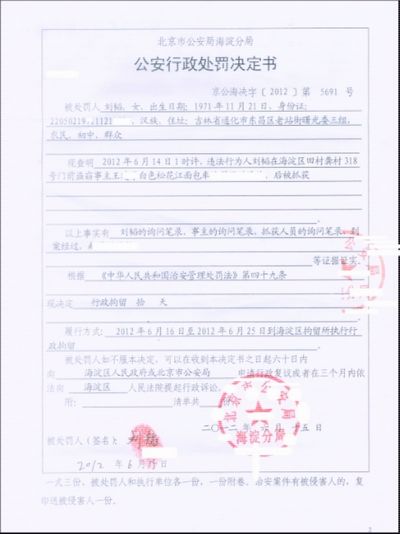 北京市公安局海淀分局
公安行政处罚决定书
京公海决字〔2012〕第 5691 号
被处罚人刘韬，女，出生日期：1971年11月21日，身份证：
22050219 1121 ，汉族，住址：吉林省通化市东昌区老站街曙光委三组，
农民，初中，群众
现查明 2012年6月14日1时许，违法行为人刘韬在海淀区田村龚村318
号门前盗窃事主王 白色松花江面包车 后被抓获
以上事实有 刘韬的询问笔录，事主的询问笔录，抓获人员的询问笔录，到
案经过，
等证据证实。
根据 《中华人民共和国治安管理处罚法》第四十九条
现决定 行政拘留 拾 天
履行方式：2012年6月16日至2012年6月25日到海淀区拘留所执行行
政拘留
被处罚人如不服本决定，可以在收到本决定书之日起六十日内
向 海淀区人民政府或北京市公安局 申请行政复议或者在三个月内依
法向 海淀区 人民法院提起行政诉讼。
附： 清单共 份
海淀分局
二〇一二年六月十五日
被处罚人（签名）：刘韬
2012年6月15日
一式三份，被处罚人和执行单位各一份，一份附卷。治安案件有被侵害人的，复
印送被侵害人一份。